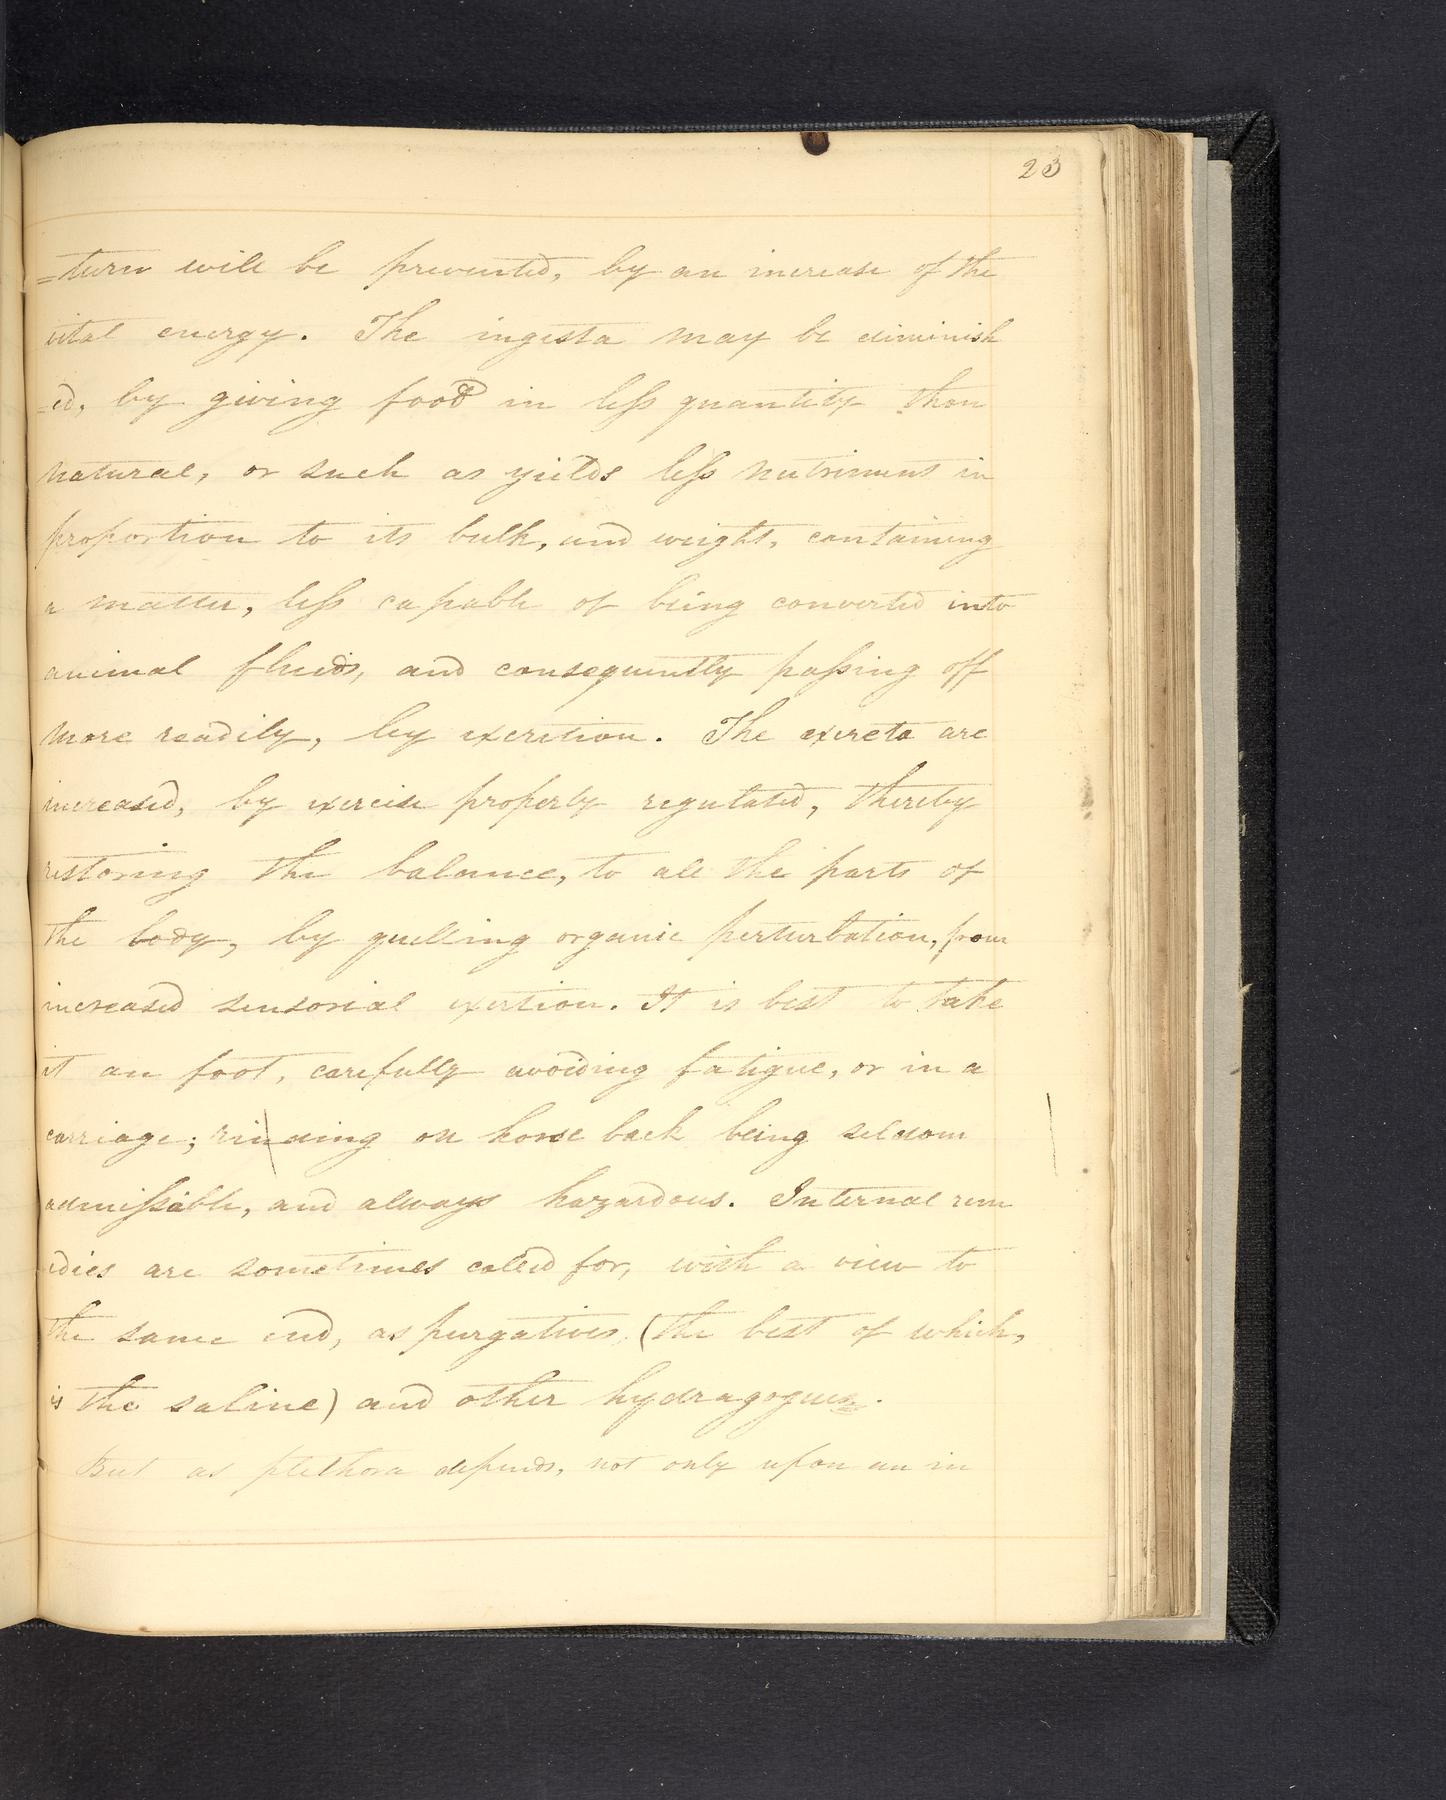 23
=turn will be prevented, by an increase of the
vital energy. The ingesta may be diminish
=ed, by giving food in less quantity than
natural, or such as yields less nutriment in
proportion to its bulk, and weight, containing
a matter, less capable of being converted into
animal fluids, and consequently passing off
more readily, by excretion. The excreta are
increased, by exercise properly regulated, thereby
restoring the balance, to all the parts of
the body, by quelling organic perturbation, from
increased sensorial exertion. It is best to take
it on foot, carefully avoiding fatigue, or in a
carriage; rinding on horse back being seldom
admissable, and always hazardous. Internal rem
edies are sometimes called for, with a view to
the same end, as purgatives, (the best of which,
is the saline) and other hydragogues.
But as plethora depends, not only upon an in